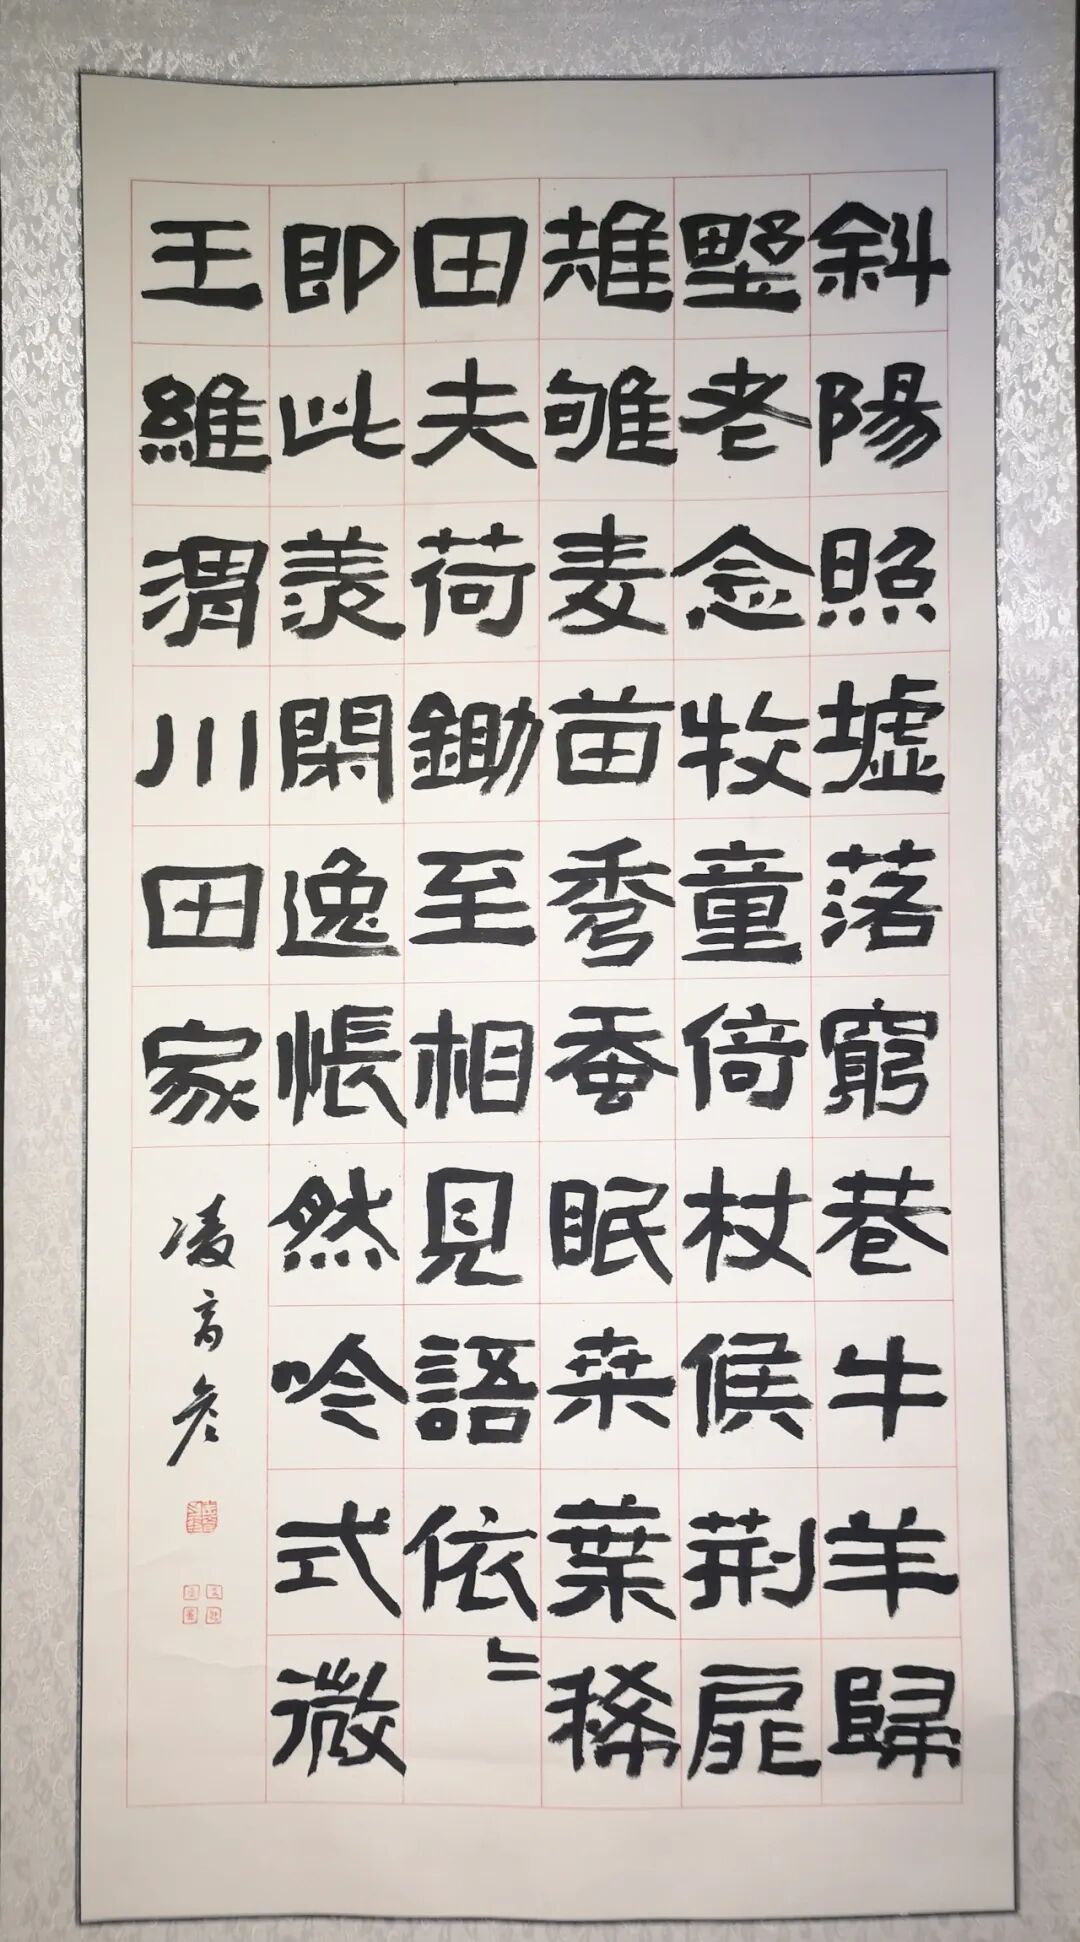 斜陽照墟落窮巷牛羊歸
墅老念牧童倚杖候荊扉
雉雊麦苗秀蚕眠桒葉稀
田夫荷鋤至相見語依〻
即此羡閑逸悵然吟式微
王維渭川田家
凌